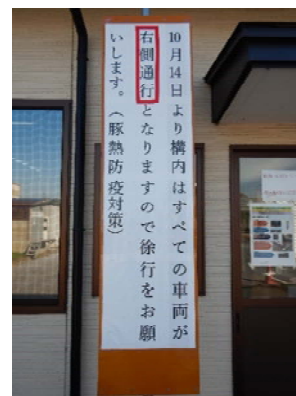 10月14日より構内はすべての車両が
右側通行となりますので徐行をお願
いします。（豚熱防疫対策）